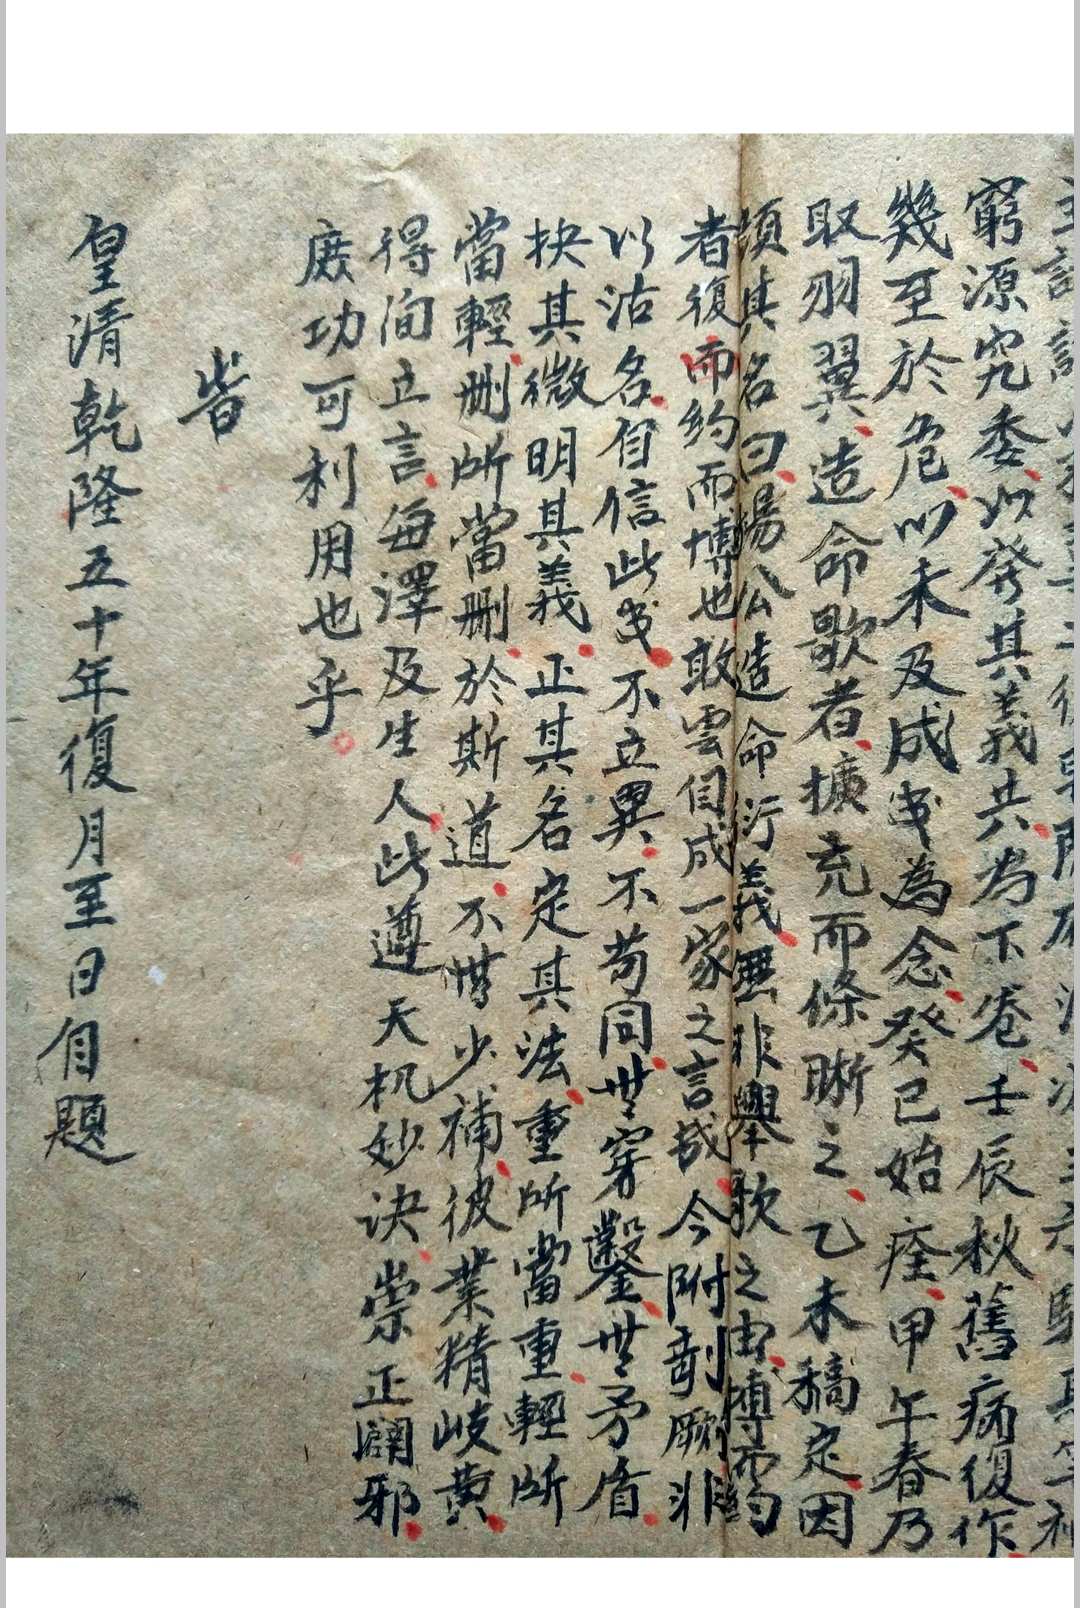 窮源究委以發其義共為下卷壬辰秋舊病復作
幾至於危以未及成書為念癸巳始痊甲午春乃
取羽翼造命歌者擴充而條晰之乙未稿定因
頭其名曰楊公造命衍義無非舉歌之由博而約
者復而約而博也敢雲自成一家之言哉今附剞劂非
以沽名自信此書不立異不苟同無穿鑿無矛盾
抉其微明其義正其名定其法重所當重輕所
當輕刪所當刪於斯道不無少補彼業精岐黃
得間立言每澤及生人此遵天机妙決崇正闢邪
庶功可利用也乎
旹
皇清乾隆五十年復月至日自題